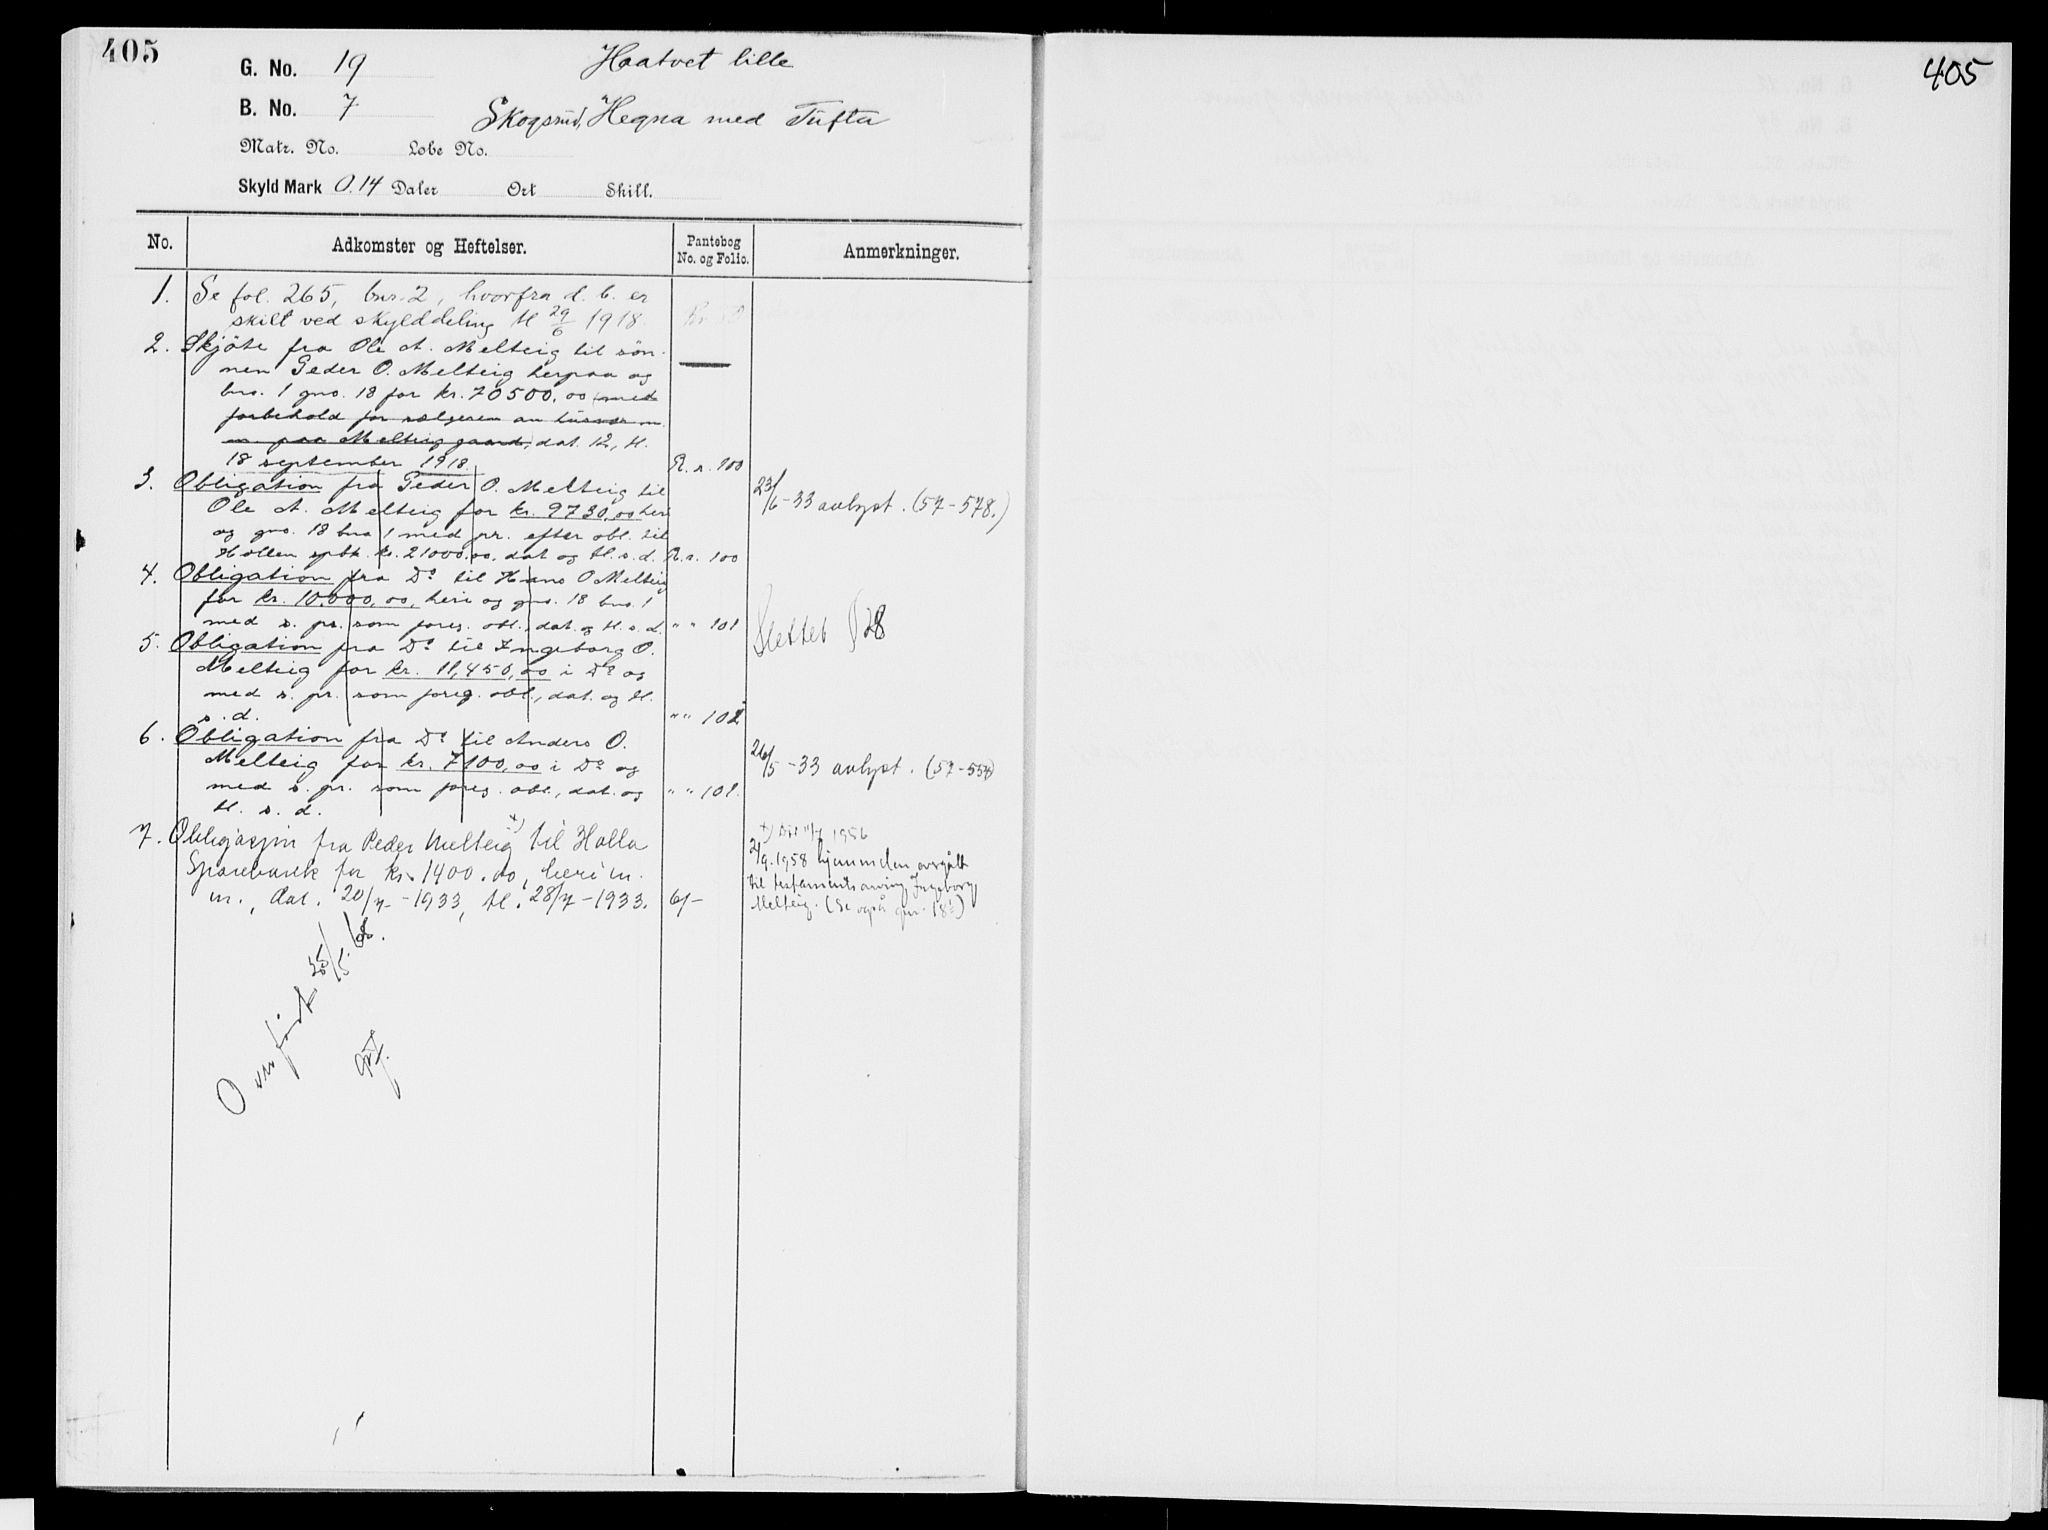 405
G. No. 19 Haatvet lille
B. No. 7 Skogsrud, Hegna med Tufta
Matr. No. Løbe No.
Skyld Mark 0.14 Daler Ort Skill.
No. Adkomster og Heftelser. Pantebog No. og Folio. Anmerkninger.
1. Se fol. 265, bnr. 2, hvorfra d. b. er
skilt ved skylddeling tl 29/6 1918.
2. Skjøte fra Ole A. Melteig til søn-
nen Peder O. Melteig herpaa og
bno. 1 gno. 18 for kr. 70500,00 (med
forbehold for sælgeren
paa Melteig gaard), dat. 12, tl.
18 september 1918. R. s. 100
3. Obligation fra Peder O. Melteig til
Ole A. Melteig for kr. 9730,00 heri
og gno. 18 bno 1 med pr. efter obl. til
Hollen spbk. kr. 21000.00, dat og tl. s. d. R. s. 100
23/6-33 avlyst. (57-578.)
4. Obligation fra Do til Hans O Melteig
for kr. 10,000,00, heri og gno. 18 bno. 1
med s. pr. som foreg. obl., dat. og tl. s. d. " " 101
Slettet 28
5. Obligation fra Do til Ingeborg O.
Melteig for kr. 11,450,00 i Do og
med s. pr. som foreg. obl., dat. og tl.
s. d. " " 102
6. Obligation fra Do til Anders O.
Melteig for kr. 7100,00 i Do og
med s. pr. som foreg. obl., dat. og " " 102.
tl. s. d.
26/5-33 avlyst. (57-554)
7. Obligasjon fra Peder Melteig x) til Holla
Sparebank for kr. 1400.00, heri m.
m., dat. 20/7-1933, tl. 28/7-1933. 61-
x) Død 11/7 1956
2/9.1958 hjemmelen overgått
til testamentsarving Ingeborg
Melteig. (Se også gnr. 18/1)
Overført 25/5. 68.
405